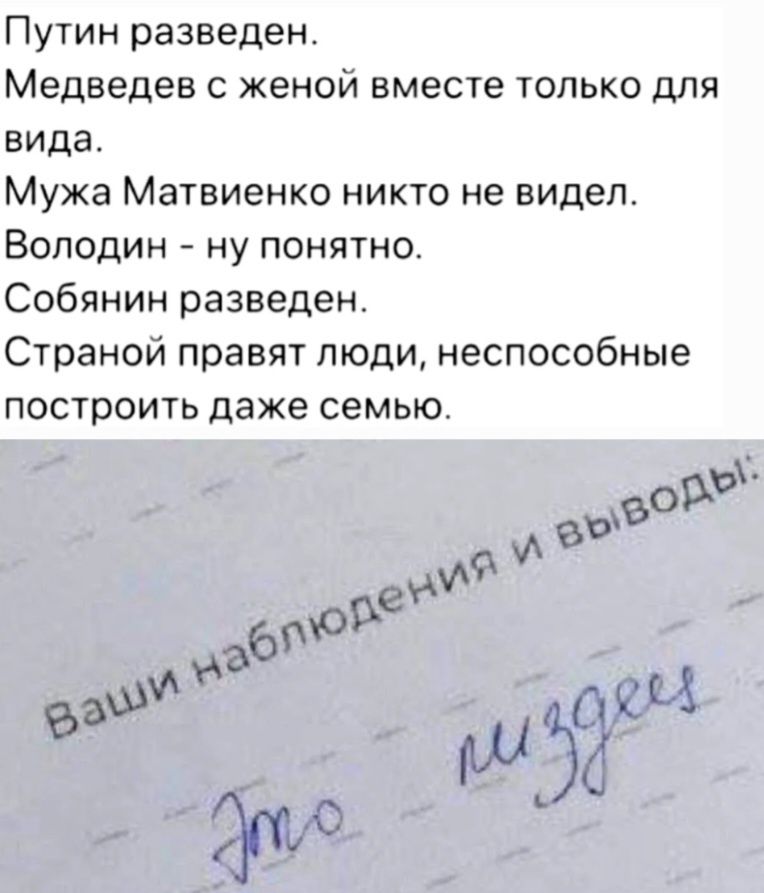 Путин разведен.
Медведев с женой вместе только для
вида.
Мужа Матвиенко никто не видел.
Володин - ну понятно.
Собянин разведен.
Страной правят люди, неспособные
построить даже семью.
Ваши наблюдения и выводы:
Это пиздец